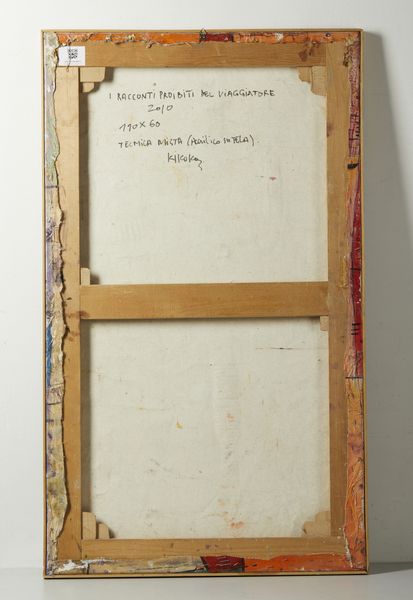 I RACCONTI PROIBITI DEL VIAGGIATORE
2010
110X60
TECNICA MISTA (ACRILICO SU TELA).
KIKOKO